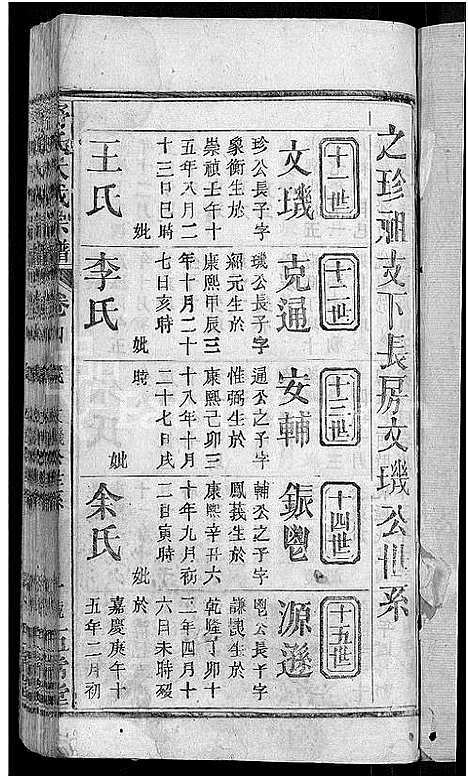 之珍祖支下長房文璣公世系
十一世
文璣
珍公長子字
象衡生於
崇禎壬午十
五年八月二
十三日巳時
妣
王氏
十二世
克通
璣公長子字
紹元生於
康熙甲辰三
年十月二十
七日亥時
妣
李氏
十三世
安輔
通公之子字
惟弼生於
康熙己卯三
十八年十月
二十七日戌
時
妣
十四世
鋠鬯
輔公之子字
鳳義生於
康熙辛丑六
十年九月初
二日寅時
妣
余氏
十五世
源遜
鬯公長子字
謙生於
乾隆丁卯十
二年四月十
六日未時歿
於
嘉慶庚午十
五年二月初
大成宗譜
卷四